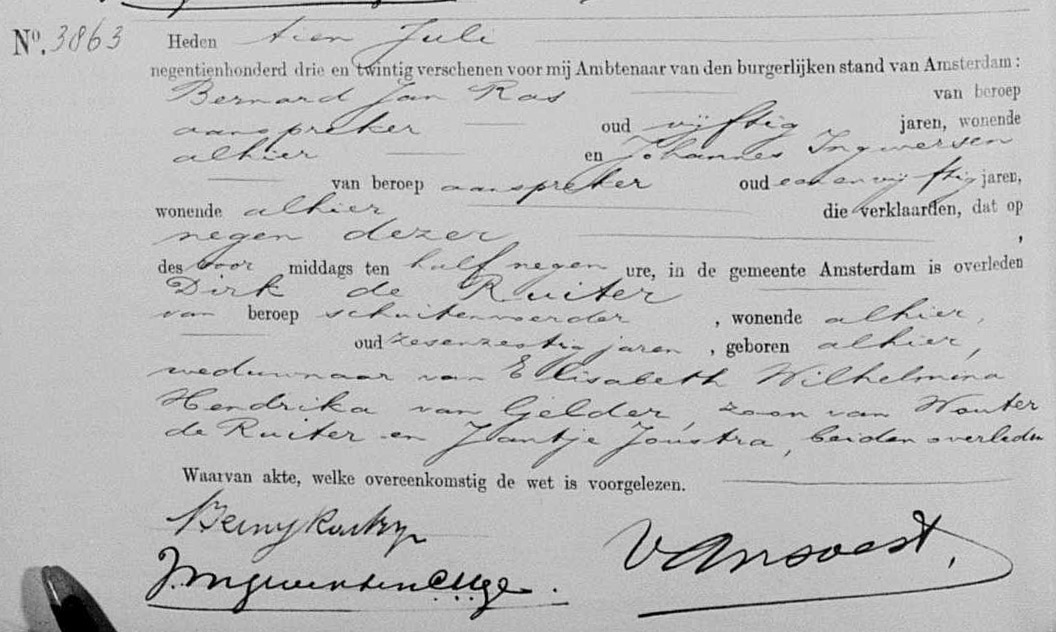 No. 3863 Heden tien Juli
negentienhonderd drie en twintig verschenen voor mij Ambtenaar van den burgerlijken stand van Amsterdam:
Bernard Jan Ras van beroep
aanspreker oud vijftig jaren, wonende
alhier en Johannes Ingwersen
van beroep aanspreker oud een en vijftig jaren,
wonende alhier die verklaarden, dat op
negen dezer ,
des voor middags ten half negen ure, in de gemeente Amsterdam is overleden
Dirk de Ruiter
van beroep schuitenvoerder , wonende alhier,
oud zesenzestig jaren , geboren alhier,
weduwnaar van Elisabeth Wilhelmina
Hendrika van Gelder, zoon van Wouter
de Ruiter en Jantje Joustra, beiden overleden
Waarvan akte, welke overeenkomstig de wet is voorgelezen.